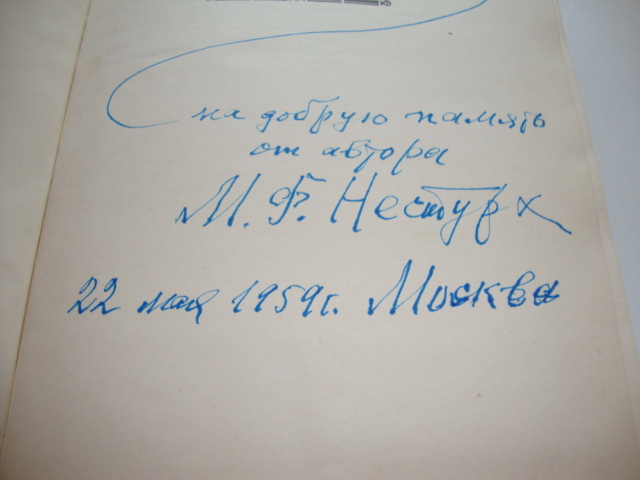 на добрую память
от автора
М. Ф. Нестурх
22 мая 1959г. Москва